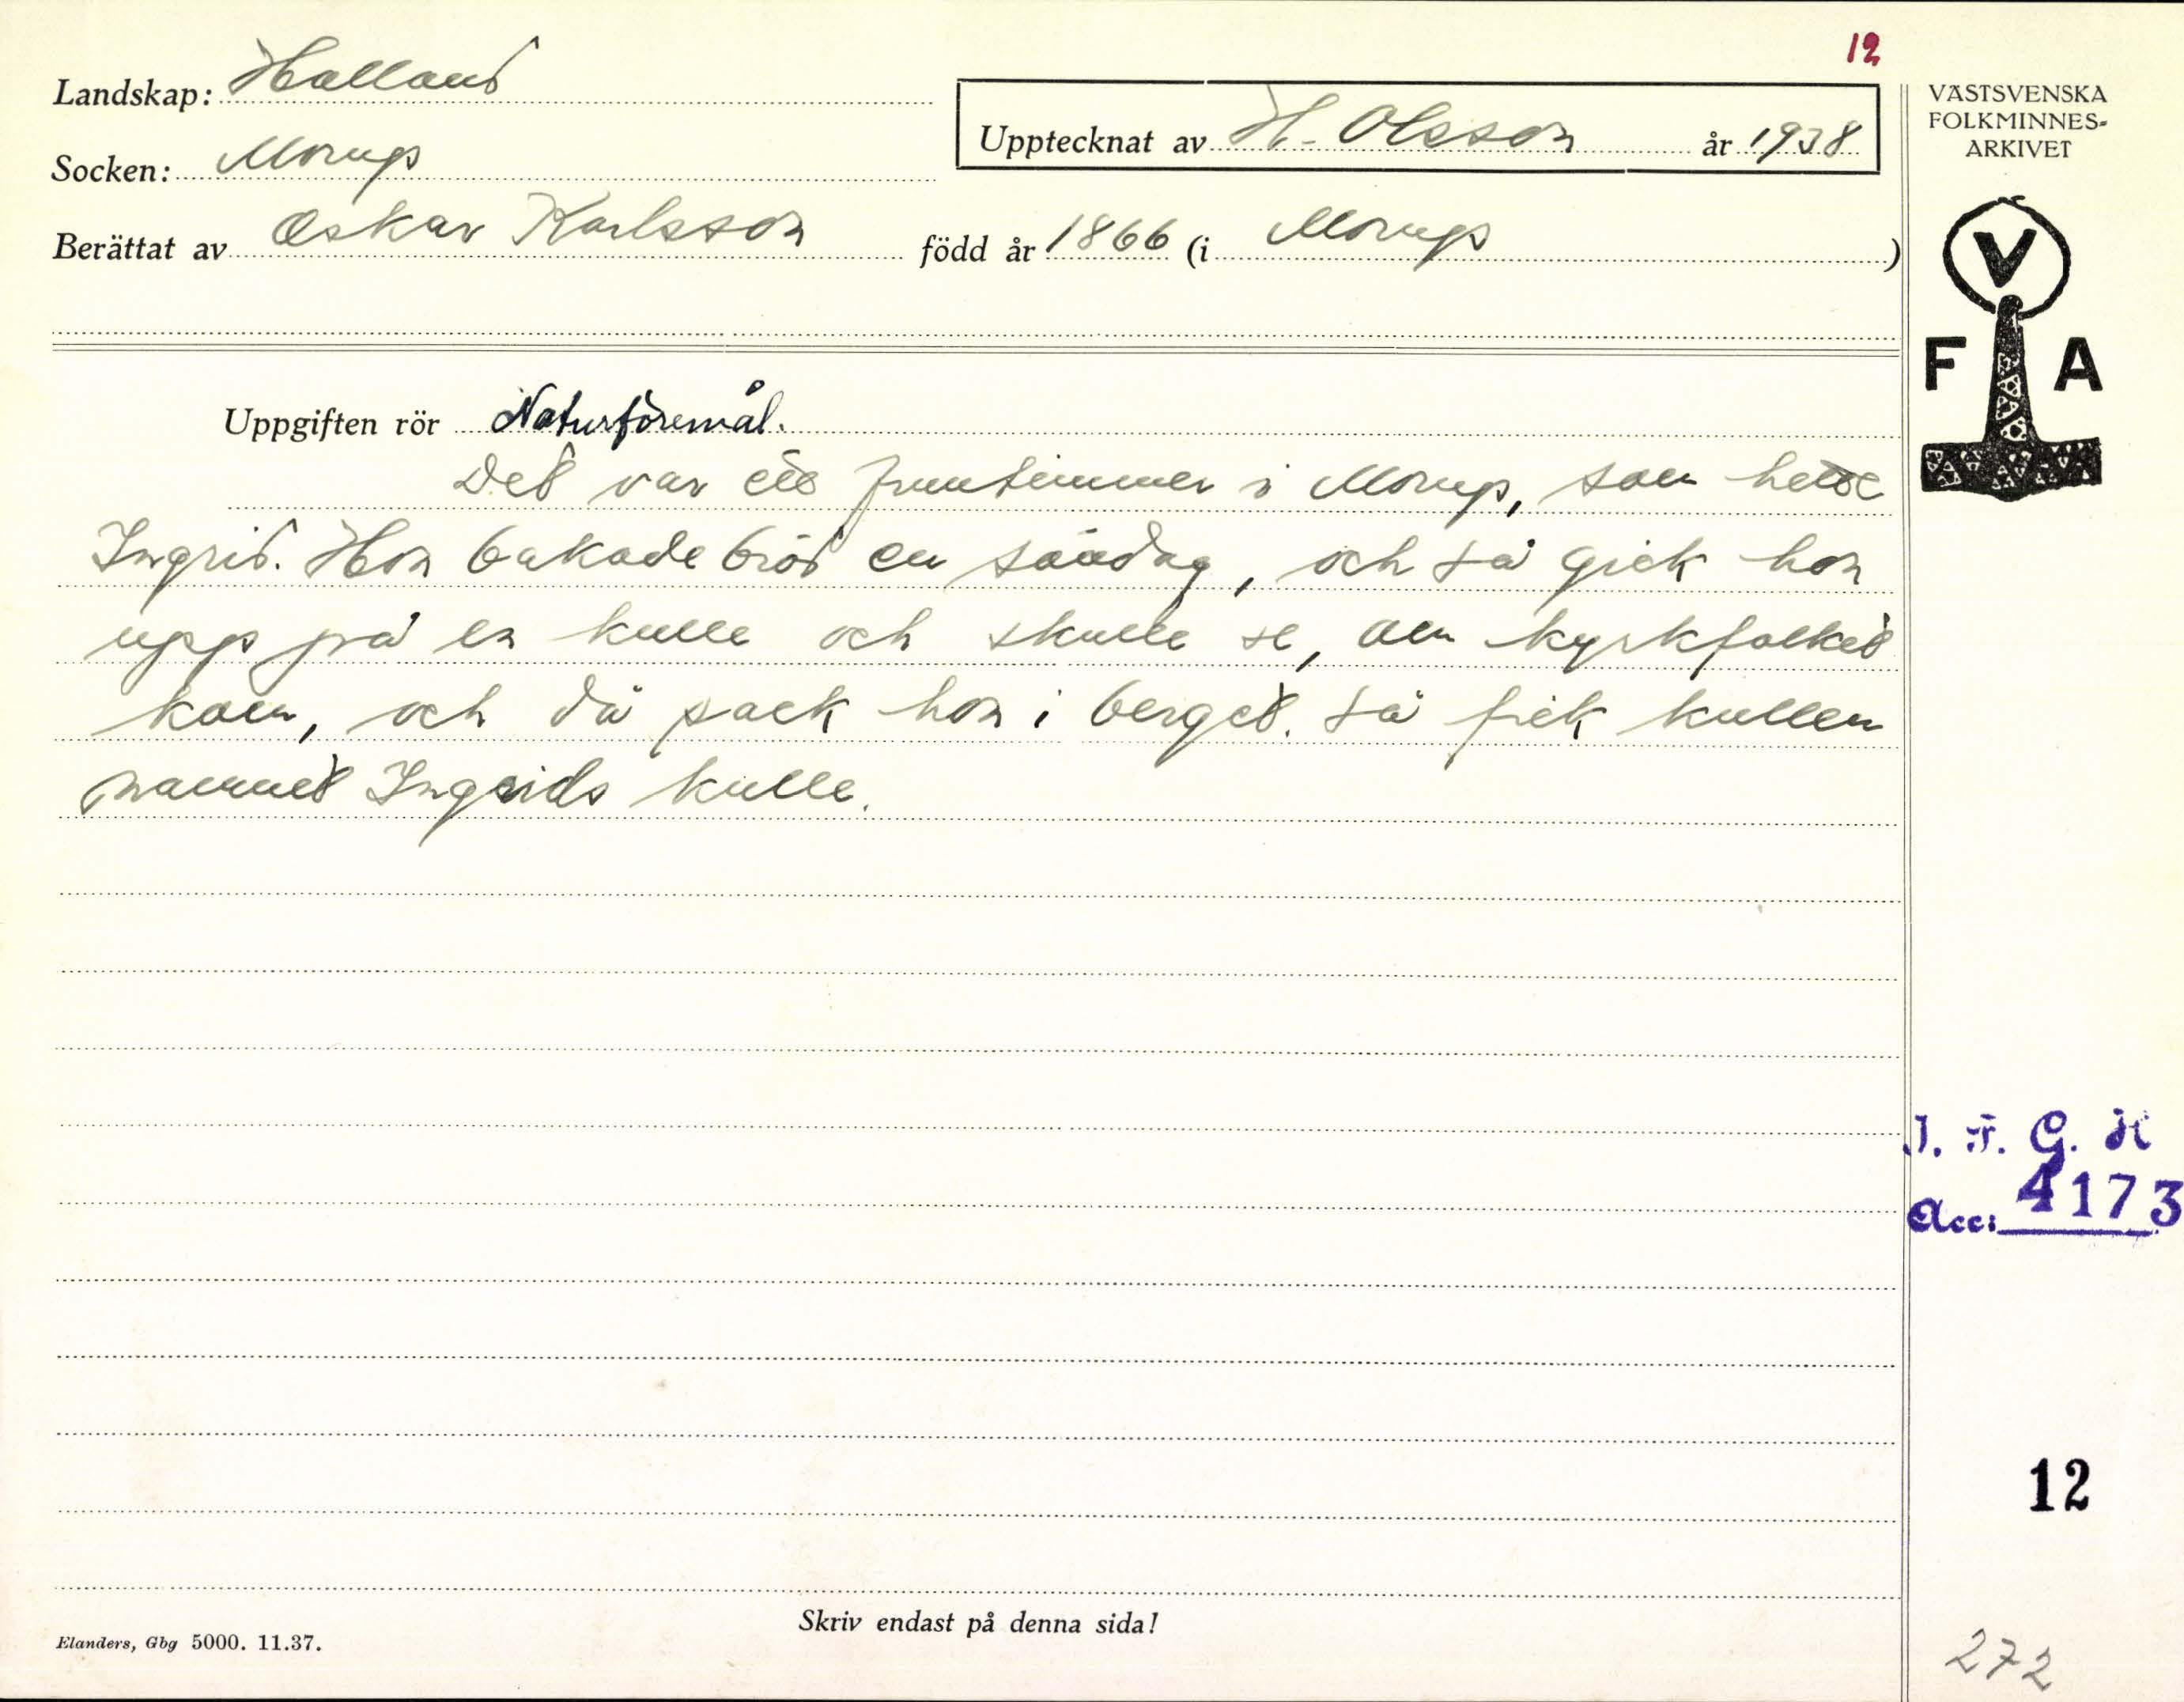 12
Landskap: Halland
Upptecknat av H. Olsson år 1938
Socken: Morup
Berättat av Oskar Karlsson född år 1866 (i Morup)
VÄSTSVENSKA
FOLKMINNES-
ARKIVET
V
F A
Uppgiften rör Naturföremål.
Det var ett fruntimmer i Morup, som hette
Ingrid. Hon bakade bröd en söndag, och så gick hon
upp på en kulle och skulle se, om kyrkfolket
kom, och då sack hon i berget. Så fick kullen
namnet Ingrids kulle.
I. F. G. H
Acc: 4173
12
Skriv endast på denna sida!
Elanders, Gbg 5000. 11.37.
272